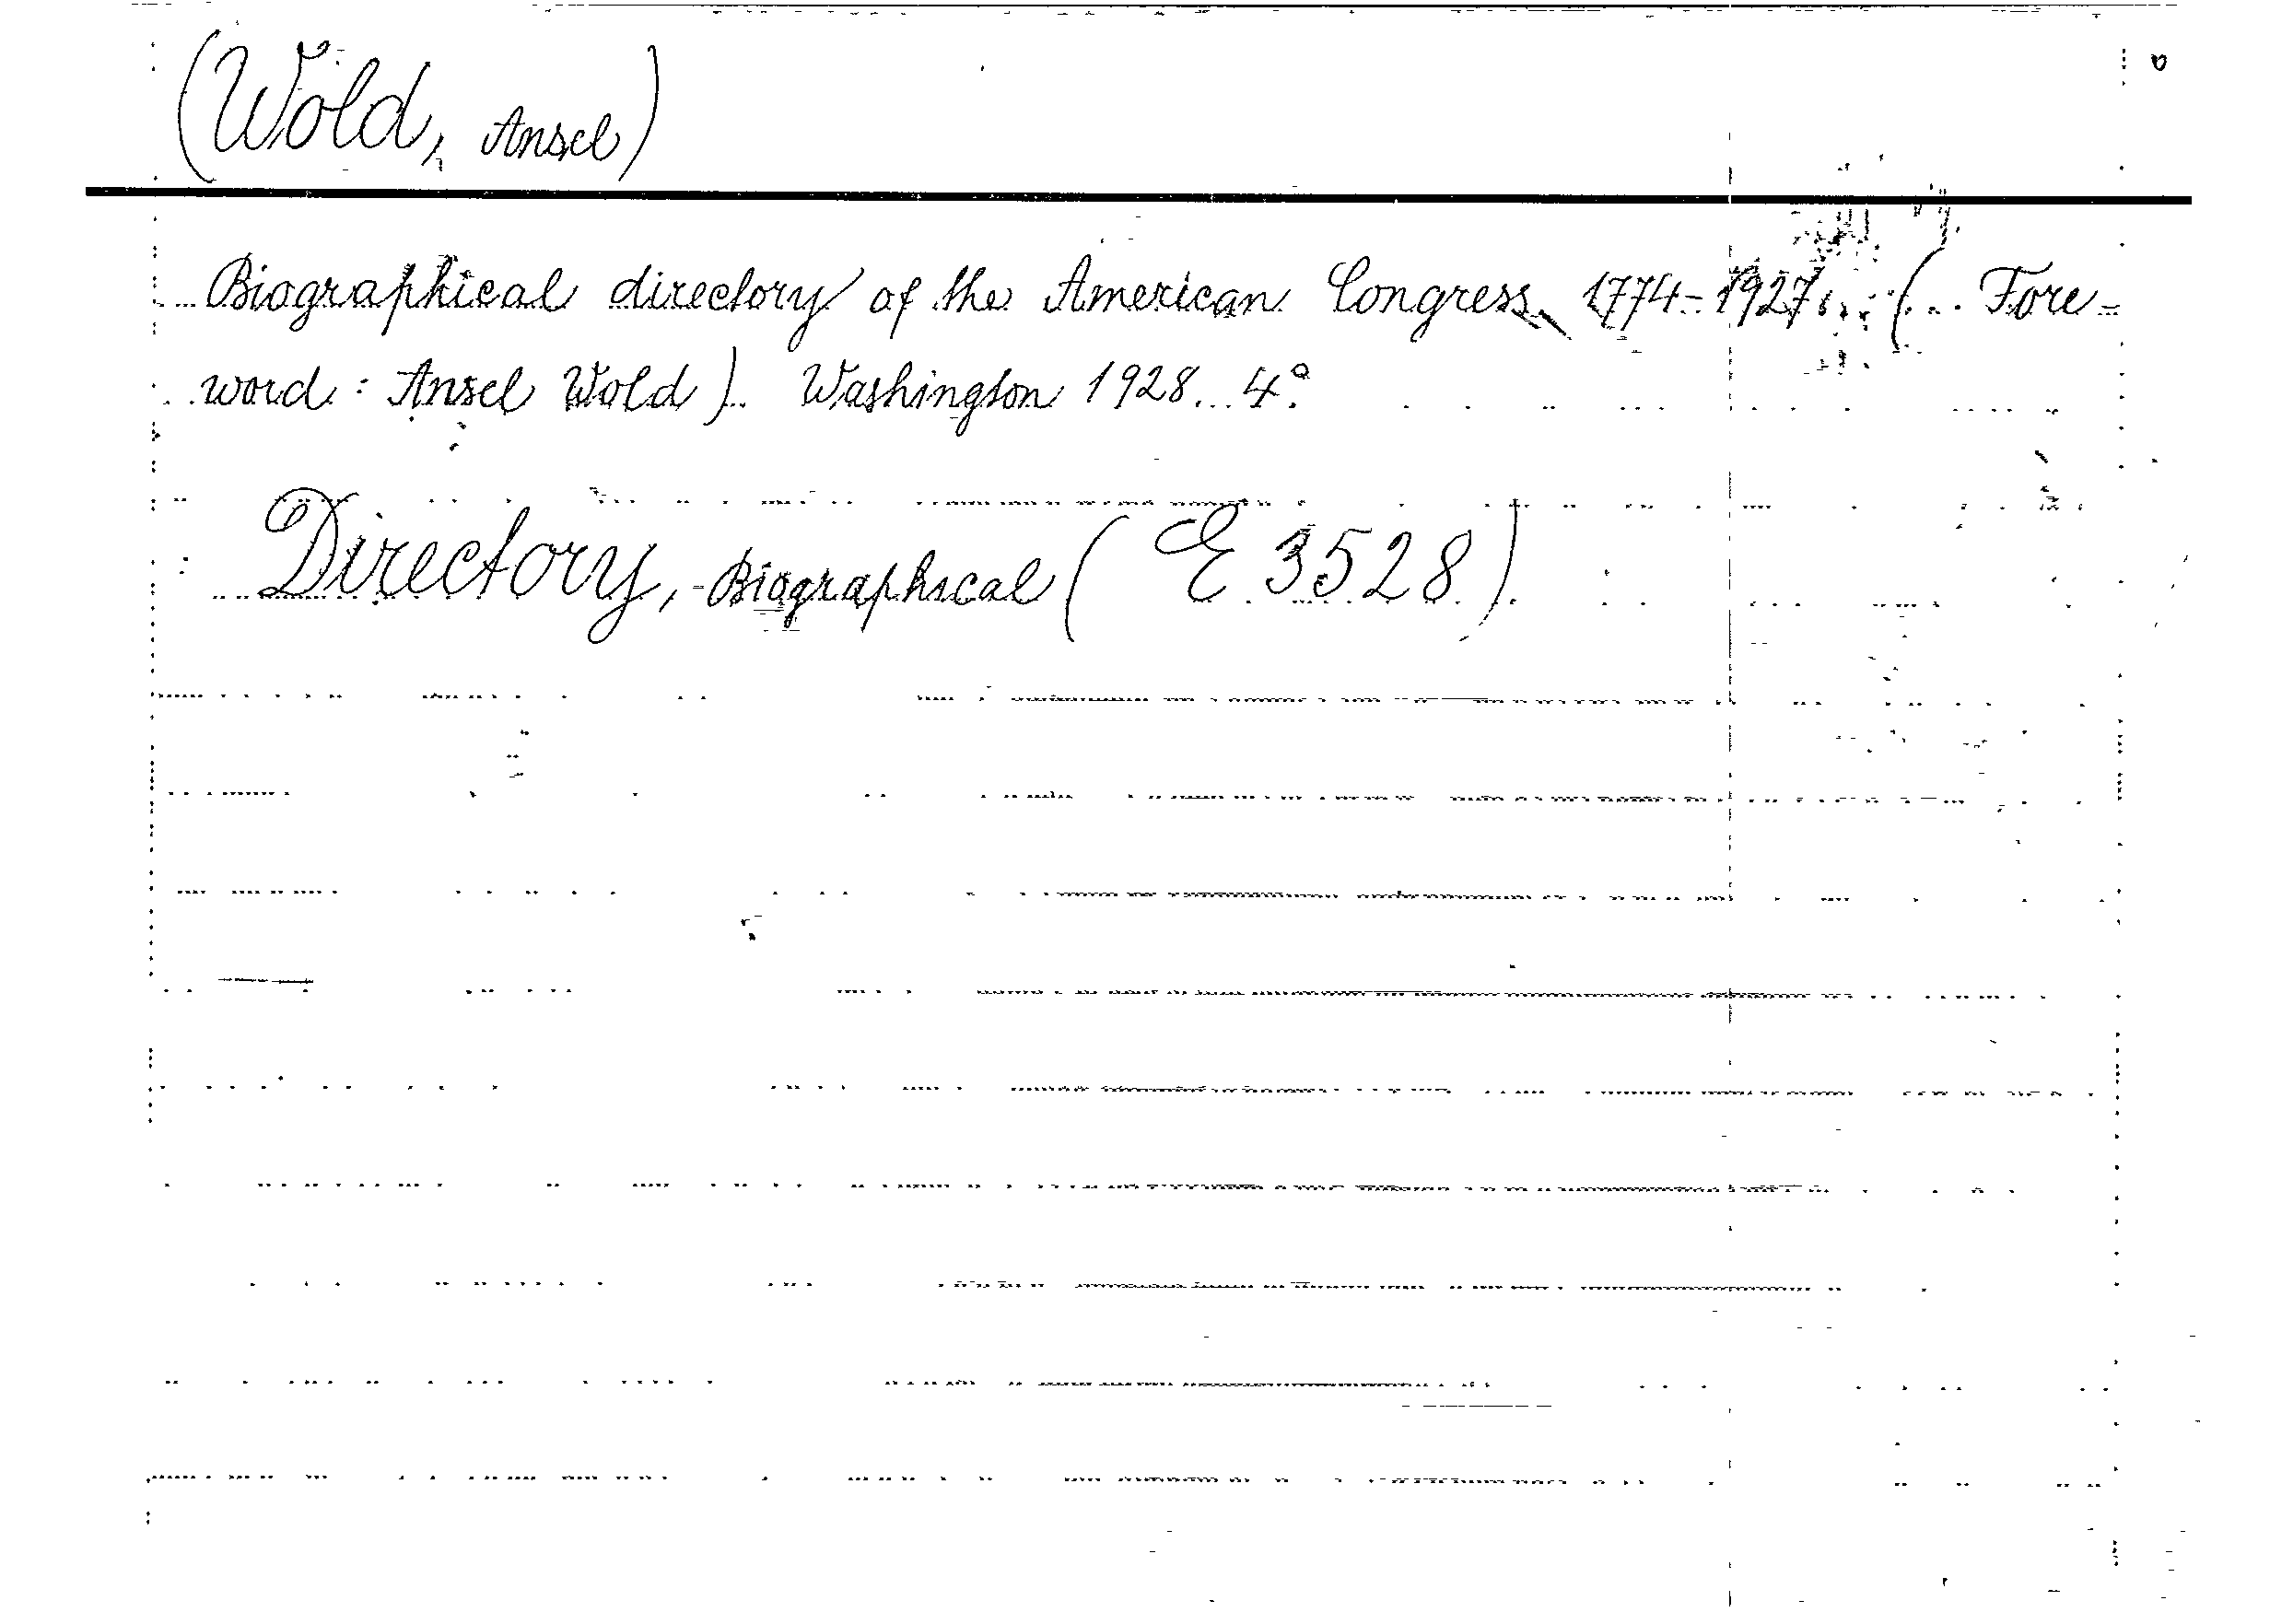 (Wold, Ansel)
Biographical directory of the American Congress, 1774-1927... (... Fore-
word: Ansel Wold). Washington 1928. 4°.
Directory, Biographical (E 3528).